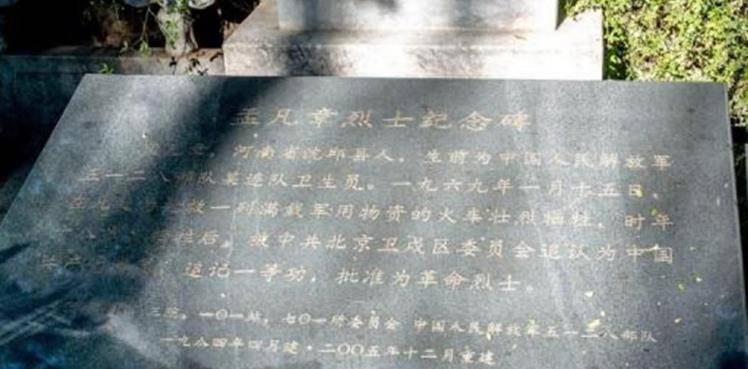 孟凡章烈士纪念碑
河南省沈邱县人，生前为中国人民解放军
五一二八部队某连队卫生员。一九六九年一月十五日，
救一列满载军用物资的火车壮烈牺牲，时年
后，被中共北京卫戍区委员会追认为中国
追记一等功，批准为革命烈士。
三院，一〇一站，七〇一所委员会 中国人民解放军五一二八部队
一九八四年四月建·二〇〇五年十二月重建